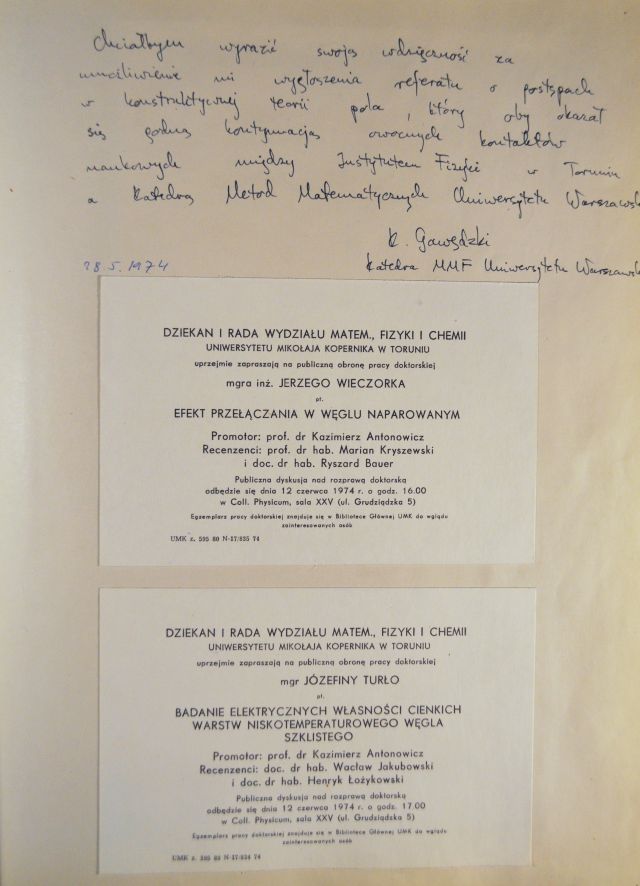 Chciałbym wyrazić swoją wdzięczność za
umożliwienie mi wygłoszenia referatu o postępach
w konstruktywnej teorii pola, który oby okazał
się godną kontynuacją owocnych kontaktów
naukowych między Instytutem Fizyki w Toruniu
a Katedrą Metod Matematycznych Uniwersytetu Warszawsk
K. Gawędzki
28.5.1974 Katedra MMF Uniwersytetu Warszawsk
DZIEKAN I RADA WYDZIAŁU MATEM., FIZYKI I CHEMII
UNIWERSYTETU MIKOŁAJA KOPERNIKA W TORUNIU
uprzejmie zapraszają na publiczną obronę pracy doktorskiej
mgra inż. JERZEGO WIECZORKA
pt.
EFEKT PRZEŁĄCZANIA W WĘGLU NAPAROWANYM
Promotor: prof. dr Kazimierz Antonowicz
Recenzenci: prof. dr hab. Marian Kryszewski
i doc. dr hab. Ryszard Bauer
Publiczna dyskusja nad rozprawą doktorską
odbędzie się dnia 12 czerwca 1974 r. o godz. 16.00
w Coll. Physicum, sala XXV (ul. Grudziądzka 5)
Egzemplarz pracy doktorskiej znajduje się w Bibliotece Głównej UMK do wglądu
zainteresowanych osób
UMK z. 595 80 N-17/835 74
DZIEKAN I RADA WYDZIAŁU MATEM., FIZYKI I CHEMII
UNIWERSYTETU MIKOŁAJA KOPERNIKA W TORUNIU
uprzejmie zapraszają na publiczną obronę pracy doktorskiej
mgr JÓZEFINY TURŁO
pt.
BADANIE ELEKTRYCZNYCH WŁASNOŚCI CIENKICH
WARSTW NISKOTEMPERATUROWEGO WĘGLA
SZKLISTEGO
Promotor: prof. dr Kazimierz Antonowicz
Recenzenci: doc. dr hab. Wacław Jakubowski
i doc. dr hab. Henryk Łożykowski
Publiczna dyskusja nad rozprawą doktorską
odbędzie się dnia 12 czerwca 1974 r. o godz. 17.00
w Coll. Physicum, sala XXV (ul. Grudziądzka 5)
Egzemplarz pracy doktorskiej znajduje się w Bibliotece Głównej UMK do wglądu
zainteresowanych osób
UMK z. 595 80 N-17/834 74